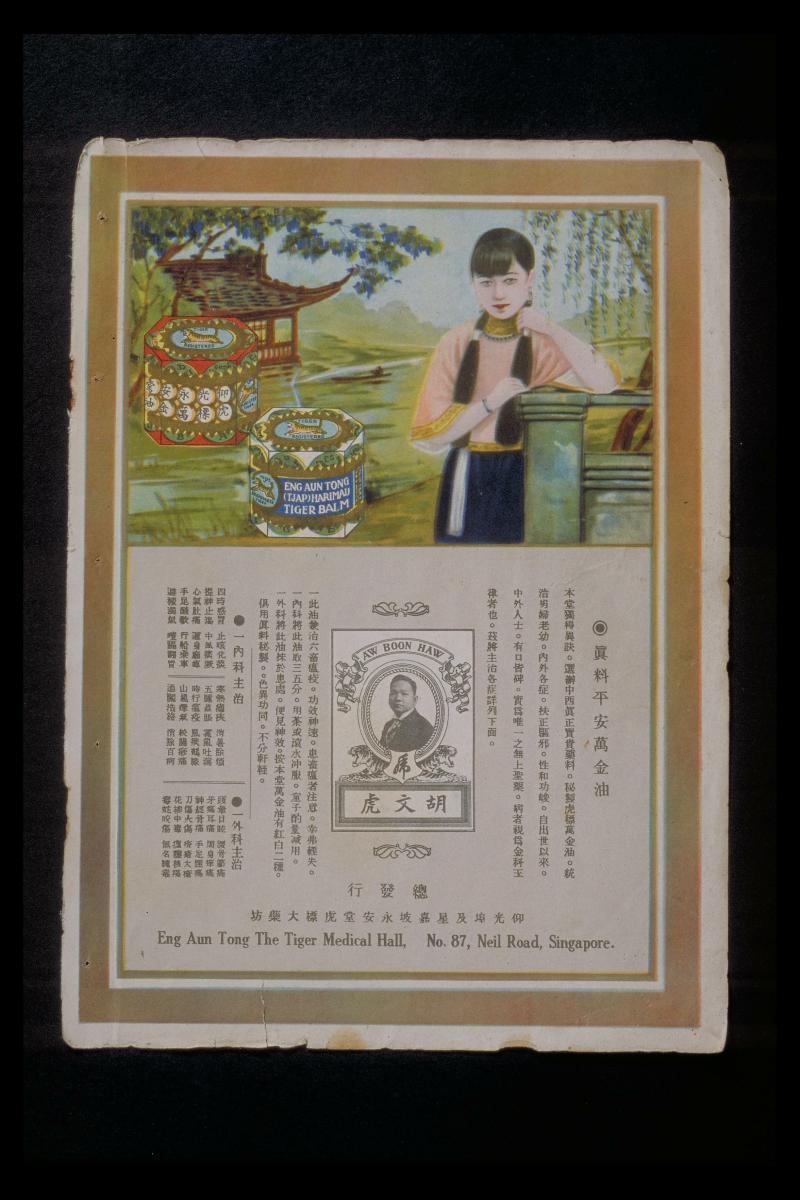 TIGER
REGISTERED
永安
萬金油
虎標
TIGER
REGISTERED
ENG AUN TONG
(TJAP) HARIMAU
TIGER BALM
◉眞料平安萬金油
本堂獨得異訣。選辦中西眞正寶貴藥料。秘製虎標萬金油。統
治男婦老幼。內外各症。扶正驅邪。性和功峻。自出世以來。
中外人士。有口皆碑。實爲唯一之無上聖藥。病者視爲金科玉
律者也。茲將主治各症詳列下面。
AW BOON HAW
虎
胡文虎
一此油兼治六畜瘟疫。功效神速。患畜瘟者注意。幸弗輕失。
一內科將此油取三五分。用茶或滾水沖服。童子酌量減用。
一外科將此油抹於患處。便見神效。按本堂萬金油有紅白二種。
俱用眞料秘製。色異功同。不分軒輊。
●一內科主治
四時感冒 止咳化痰
提神止渴
心氣肚痛
手足酸軟 行船乘車
●一外科主治
頭暈目眩
牙痛耳痛
神經骨痛
刀傷火傷
毒蛇咬傷 無名腫毒
總發行
仰光埠及星嘉坡永安堂虎標大藥坊
Eng Aun Tong The Tiger Medical Hall, No. 87, Neil Road, Singapore.